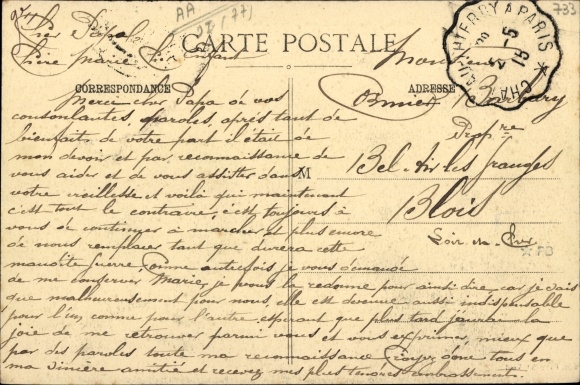 AA
(77)
733
Cher Papa
Chère Marie Cher Enfant
CARTE POSTALE
CHAU-THIERRY A PARIS
5
15
CORRESPONDANCE
ADRESSE
Monsieur
Barbary
Propre
M Bel-Air les Granges
Blois
Loir-et-Cher
FB
Merci cher Papa de vos
consolantes paroles, après tant de
bienfaits de votre part il était de
mon devoir et par reconnaissance de
vous aider et de vous assister dans
votre vieillesse et voilà que maintenant
c'est tout le contraire, c'est toujours à
vous de continuer à marcher et plus encore
de nous remplacer tant que durera cette
maudite guerre. Comme autrefois je vous demande
de me conserver Marie, je vous la redonne pour ainsi dire, car je vais
que malheureusement pour nous, elle est devenue aussi indispensable
pour l'un comme pour l'autre, espérant que plus tard j'aurai la
joie de me retrouver parmi vous et vous exprimer mieux que
par des paroles toute ma reconnaissance. Croyez donc tous en
ma sincère amitié et recevez mes plus tendres embrassements.